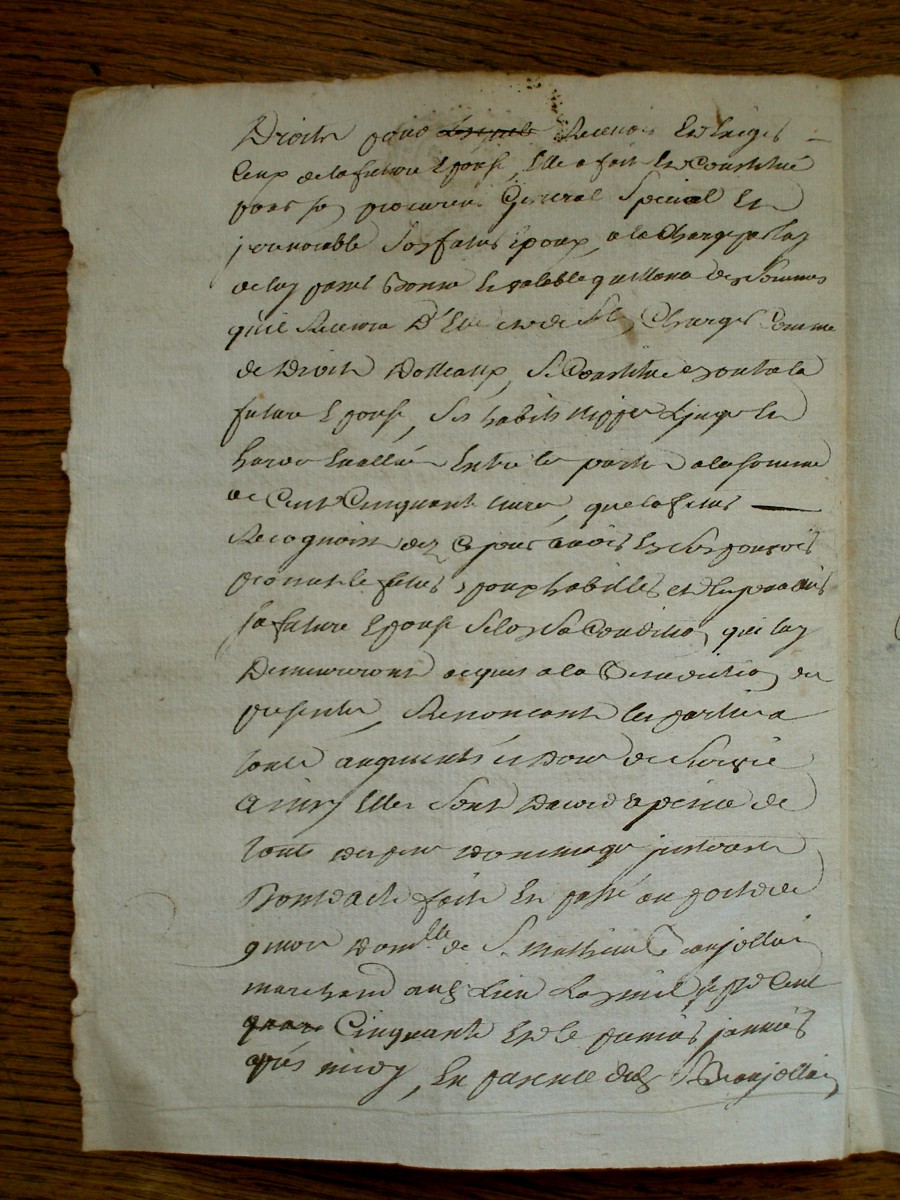 Droits pour Recevoir Et Exiger
Ceux de la future Epouse, Elle a fait Et Constitué
pour son procureur General Special Et
jrrevocable Son futur Epoux, a la Charge par luy
de luy passer Bonne Et valable quittance des Sommes
qu'il Recevra Charges Comme
de Droit Dotteaux, Se Constitue Encore la
future Epouse, Ses habits nippes Linge Et
hardes Evallués Entre les parties a la somme
de Cent Cinquante livres, que le futur
Recognoist dez Ce jour avoir En Son pouvoir
promet le futur Epoux habilles et
sa future Epouse Selon Sa Condition qui luy
Demeureront acquis a la Benediction des
presentes, Renoncant les parties a
tout augment et Dons de Survie
ainsy Elles Sont Dacord a peine de
touts despens Dommages jnterests
Dont acte fait Et passé au
domlle de Sr Mathieu Beaujollin
marchand aud Lieu La mil sept Cent
Cinquante Et le premier janvier
après midy, En presence dud Sr Beaujollin